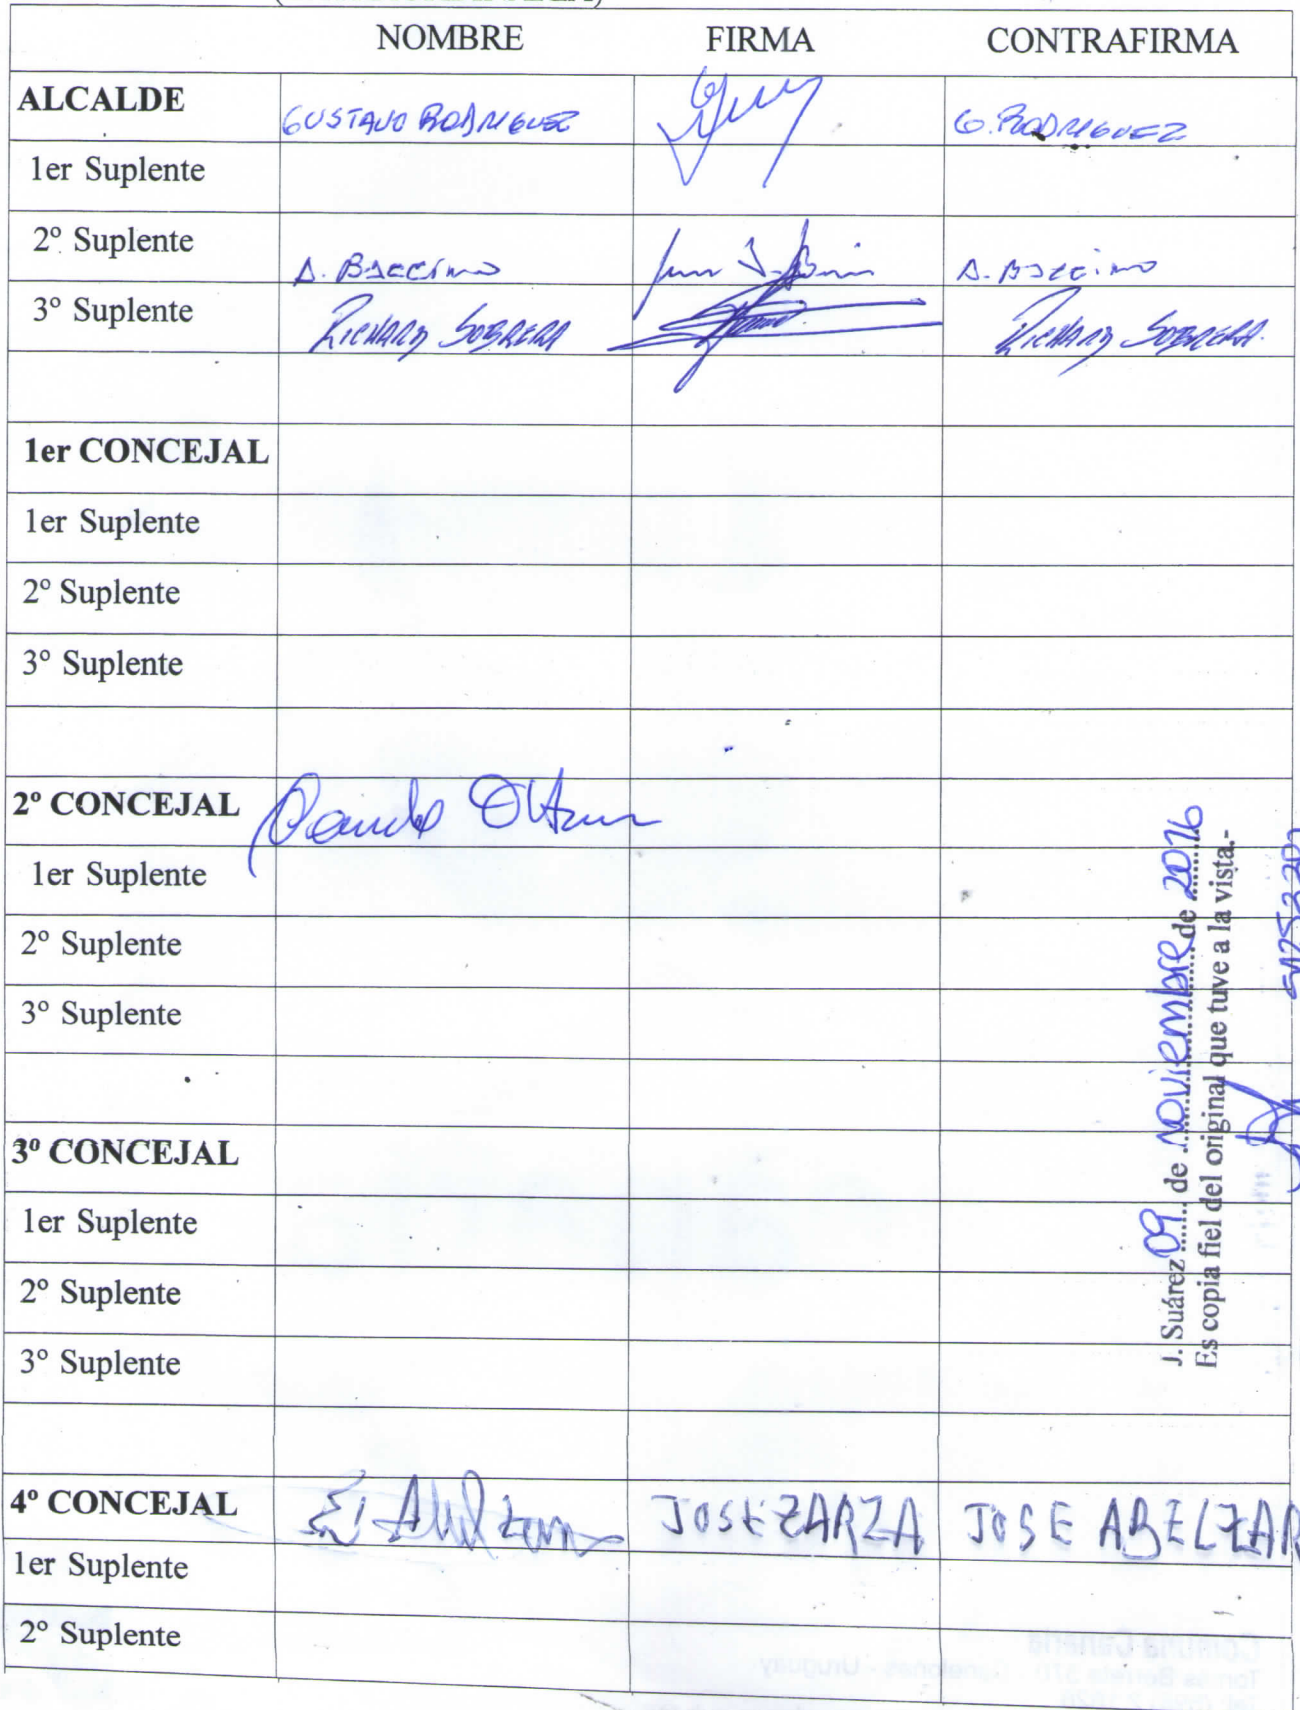 NOMBRE FIRMA CONTRAFIRMA
ALCALDE GUSTAVO RODRIGUEZ G. RODRIGUEZ
1er Suplente
2º Suplente A. A.
3º Suplente RICHARD SOBRERA RICHARD SOBRERA.
1er CONCEJAL
1er Suplente
2º Suplente
3º Suplente
2º CONCEJAL
1er Suplente
2º Suplente
3º Suplente
3º CONCEJAL
1er Suplente
2º Suplente
3º Suplente
4º CONCEJAL JOSE ZARZA JOSE ABEL ZAR
1er Suplente
2º Suplente
J. Suárez 09 de noviembre de 2016
Es copia fiel del original que tuve a la vista.-
Comuna Canaria
Tomás Berreta 370 - Canelones - Uruguay